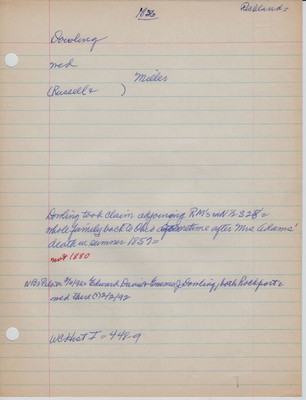 1856
Richland=
Dowling
med
Miller
(Russell &      )
Dowling took claim adjoining RM's
whole family back to Ohio sometime after Mrs Adams'
death in summer 1857=
not 1880
Edward Davis & Emma J Dowling, both Rockport=
med there (?) 2/2/92
WCHist I = 448-9